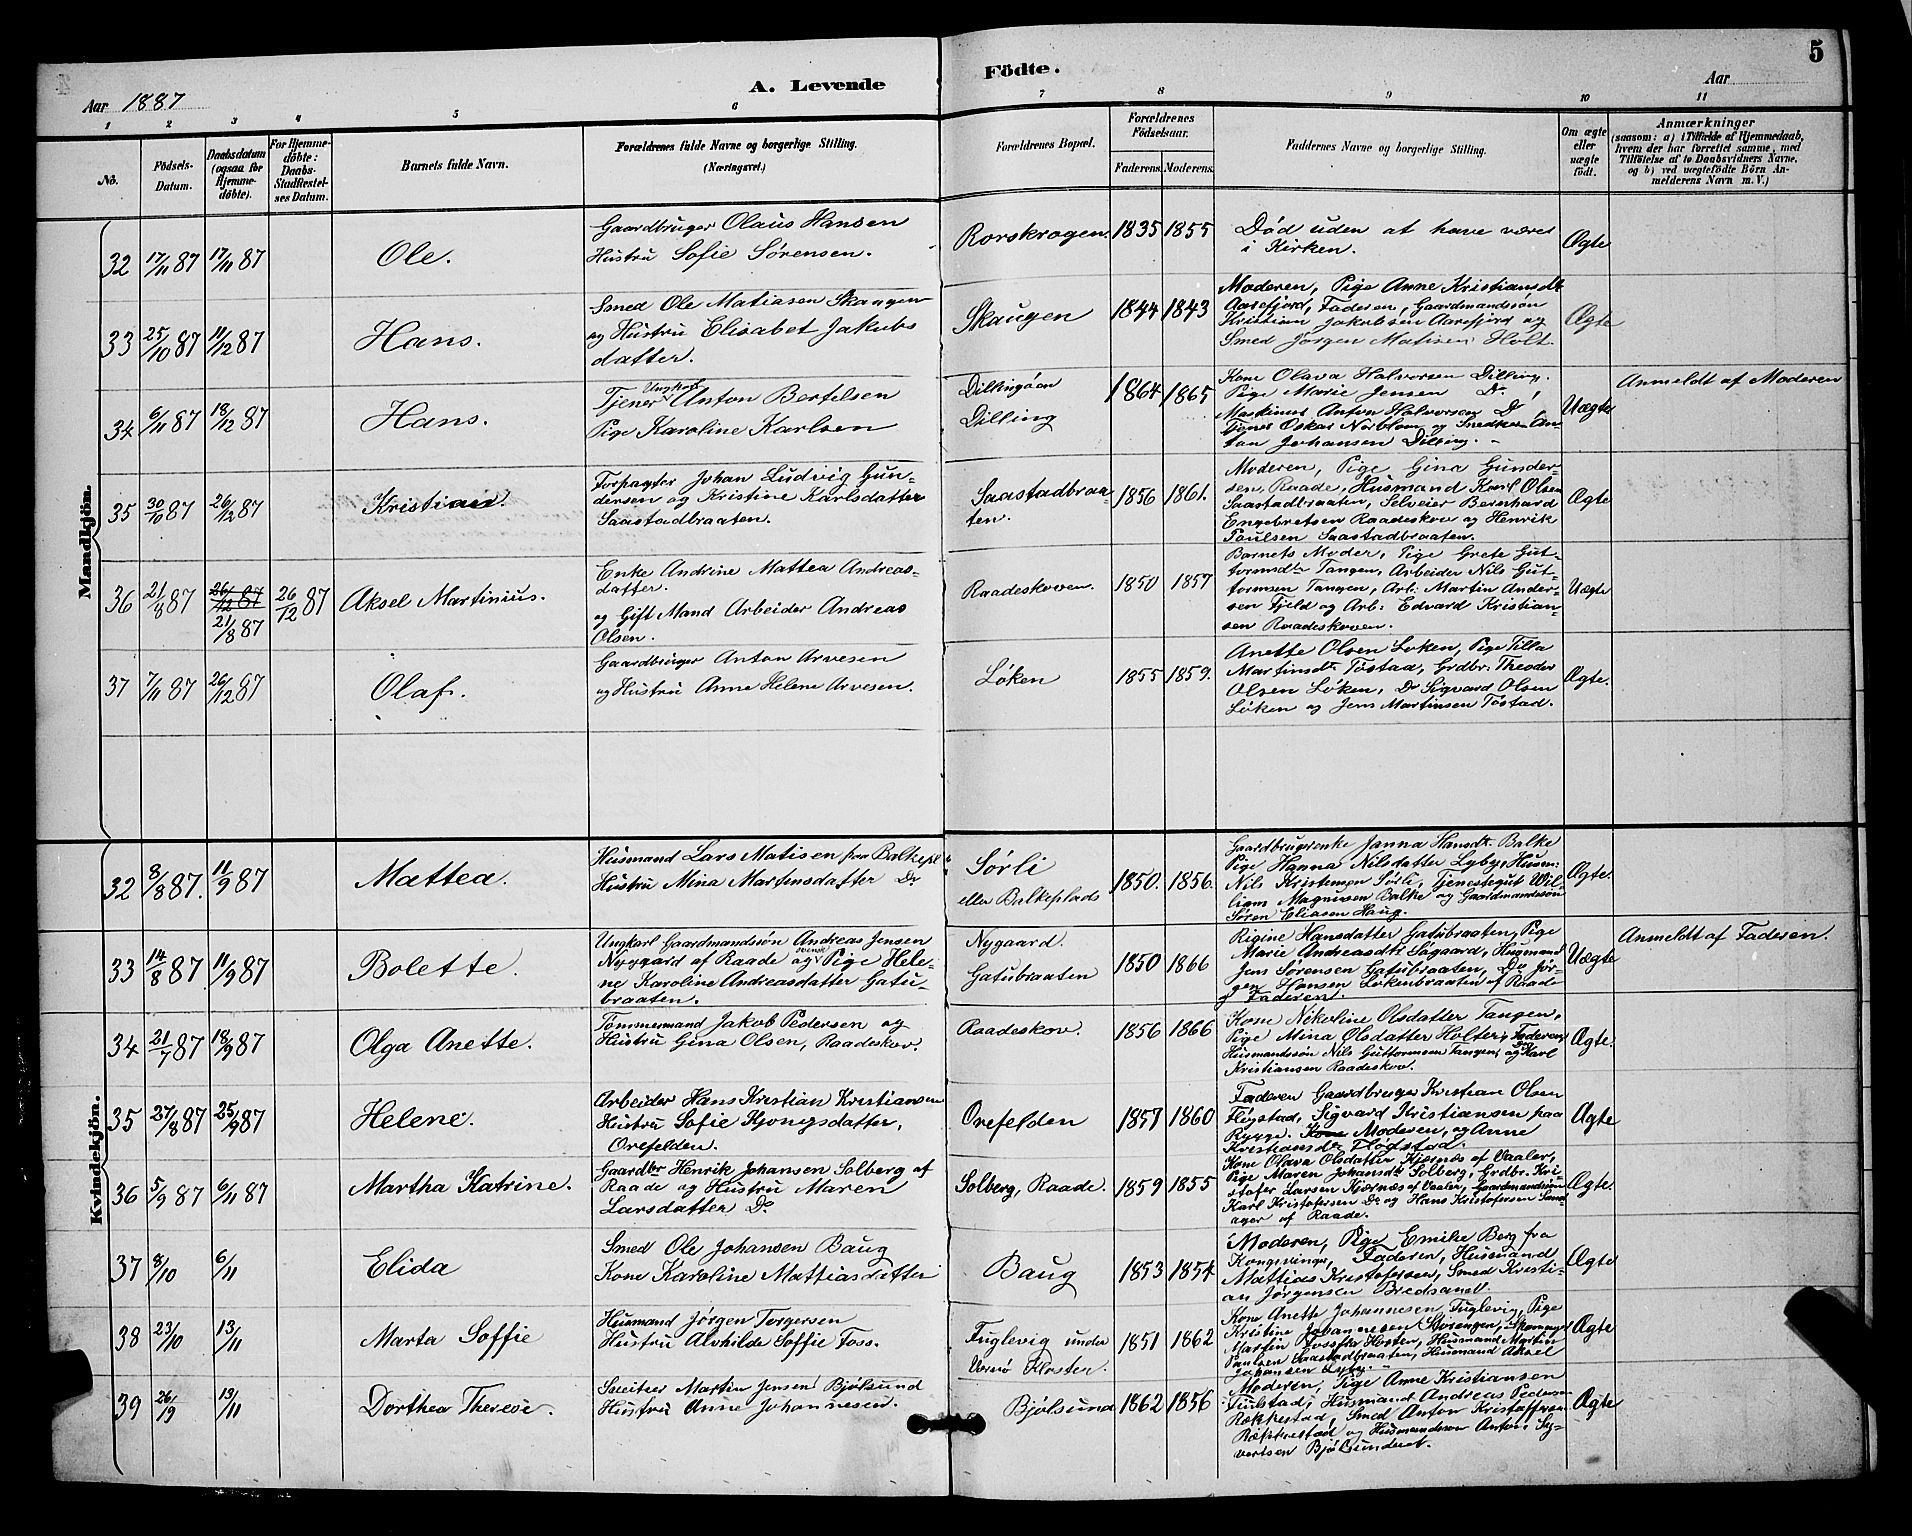 5
A. Levende Födte.
Aar 1887
Aar
1 2 3 4 5 6 7 8 9 10 11
No.
Födsels-Datum.
Daabsdatum (ogsaa for Hjemmedøbte).
For Hjemmedøbte: Daabs-Stadfæstelses Datum.
Barnets fulde Navn.
Forældrenes fulde Navne og borgerlige Stilling.
(Næringsvei.)
Forældrenes Bopæl.
Forældrenes Födselsaar.
Faderens. Moderens.
Faddernes Navne og borgerlige Stilling.
Om ægte eller uægte født.
Anmærkninger
(saasom: a) i Tilfælde af Hjemmedaab, hvem der har forrettet samme, med Tilföielse af to Daabsvidners Navne, og b) ved uægtefödte Börn Anmelderens Navn m. V.)
Mandkjön.
32 17/11 87 17/11 87 Ole.
Gaardbruger Olaus Hansen
Hustru Sofie Sørensen.
Rorskrogen. 1835 1855
Død uden at have været
i Kirken.
Ægte
33 25/10 87 11/12 87 Hans.
Smed Ole Matiasen Skaugen
og Hustru Elisabet Jakobs
datter.
Skaugen 1844 1843
Moderen, Pige Anne Kristiansdt
Aarefjord, Faderen, Gaardmandssön
Kristian Jakobsen Aarefjord og
Smed Jørgen Matisen Holt.
Ægte
34 6/11 87 18/12 87 Hans.
Tjener Ungkarl Anton Bertelsen
Pige Karoline Karlsen
Dillingøen
Dilling
1864 1865
Kone Olava Halvorsen Dilling.
Pige Marie Jensen Do,
Martinus Anton Halvorsen Do,
Tjener Oskar Norblom og Snedker An-
ton Johansen Dilling.
Uægte
Anmeldt af Moderen
35 30/10 87 26/12 87 Kristian.
Forpagter Johan Ludvig Gun-
dersen og Kristine Karlsdatter
Saastadbraaten.
Saastadbraa-
ten.
1856 1861.
Moderen, Pige Gina Gunder-
sen, Raade, Husmand Karl Olsen
Saastadbraaten, Selveier Bernhard
Engebretsen Raadeskov og Henrik
Paulsen Saastadbraaten.
Ægte
36 21/8 87 26/12 87 21/8 87 26/12 87 Aksel Martinius.
Enke Andrine Mattea Andreas-
datter.
og Gift Mand Arbeider Andreas
Olsen.
Raadeskoven. 1850 1857
Barnets Moder, Pige Grete Gut-
tormsdtr Tangen, Arbeider Nils Gut-
tormsen Tangen, Arb: Martin Ander-
sen Fjeld og Arb: Edvard Kristian-
sen Raadeskoven.
Uægte
37 7/11 87 26/12 87 Olaf.
Gaardbruger Anton Arvesen
og Hustru Anne Helene Arvesen.
Løken 1855 1859.
Anette Olsen Løken, Pige Tilla
Martinsdtr Tøstad, Grdbr. Theodor
Olsen Løken, Do Sigvard Olsen
Løken og Jens Martinsen Tøstad.
Ægte.
Kvindekjön.
32 8/8 87. 11/9 87 Mattea.
Husmand Lars Matisen paa Balkepl
Hustru Mina Martinsdatter Do
Sørli
eller Balkeplads
1850. 1856.
Gaardbrugerenke Janna Hansdtr Balke
Pige Hanna Nilsdatter Lyby, Husm:
Nils Kristensen Sørli, Tjenestegut Wil-
liam Magnusen Balke og Gaardmandssön
Søren Eliasen Haug.
Ægte.
33 14/8 87 11/9 87 Bolette.
Ungkarl Gaardmandssøn Andreas Jensen
Nygaard af Raade og svensk Pige Hele-
ne Karoline Andreasdatter Gatu-
braaten.
Nygaard.
Gatubraaten
1850 1866
Rigine Hansdatter Gatubraaten, Pige
Marie Andreasdtr Søgaard, Husmand
Jens Sørensen Gatubraaten, Do Jør-
gen Hansen Løkenbraaten af Raade
og Faderen.
Uægte
Anmeldt af Faderen.
34 21/7 87 18/9 87 Olga Anette.
Tømmermand Jakob Pedersen og
Hustru Gina Olsen, Raadeskov.
Raadeskov. 1856 1866
Kone Nikoline Olsdatter Tangen,
Pige Mina Olsdatter Holter, Faderen,
Husmandssøn Nils Guttormsen Tangen, og Karl
Kristiansen Raadeskov.
Ægte.
35 27/8 87 25/9 87 Helene.
Arbeider Hans Kristian Kristiansen
Hustru Sofie Kjongsdatter,
Orefelden.
Orefelden 1857 1860
Faderen Gaardbruger Kristian Olsen
Fløgstad, Sigvard Kristiansen paa
Rygge. Kone Moderen, og Anne
Kristiansdtr Fløgstad.
Ægte
36 5/9 87 6/11 87 Martha Katrine.
Gaardbr Henrik Johansen Solberg af
Raade og Hustru Maren
Larsdatter Do
Solberg, Raade. 1859 1855
Kone Olava Olsdatter Kjærnes af Vaaler,
Pige Maren Johansdtr Solberg, Grdbr. Kri-
stofer Larsen Kjærnæs af Vaaler, Gaardmandssøn
Karl Kristofersen Do og Hans Kristofersen Sand
ager af Raade.
Ægte.
37 8/10 6/11 Elida
Smed Ole Johansen Baug
Kone Karoline Mattiasdatter
Baug 1853 1854
Moderen, Pige Emilie Berg fra
Kongsvinger, Faderen, Husmand
Mattias Kristofersen, Smed Kristi-
an Jørgensen Bredsand.
Ægte
38 23/10 13/11 Marta Soffie
Husmand Jørgen Torgersen
Hustru Alvhilde Soffie Foss.
Fuglevig under
Værnø Kloster.
1851 1862
Kone Anette Johannesen Fuglevig, Pige
Kristine Johannesen Storengen,
Martin Husmand Martin
Paulsen Saastadbraaten, Husmand Aksel
Johansen Lyby.
Ægte
39 26/9 13/11 Dorthea Therese.
Sveitser Martin Jensen Bjølsund
Hustru Anne Johannesen.
Bjølsund 1862 1856
Moderen, Pige Anne Kristiansen
Fuglstad, Husmand Andreas Pedersen
Rækkestad, Smed Anton Kristoffersen
Rækkestad og Husmandssøn Anton Sy-
vertsen Bjølsundent.
Ægte